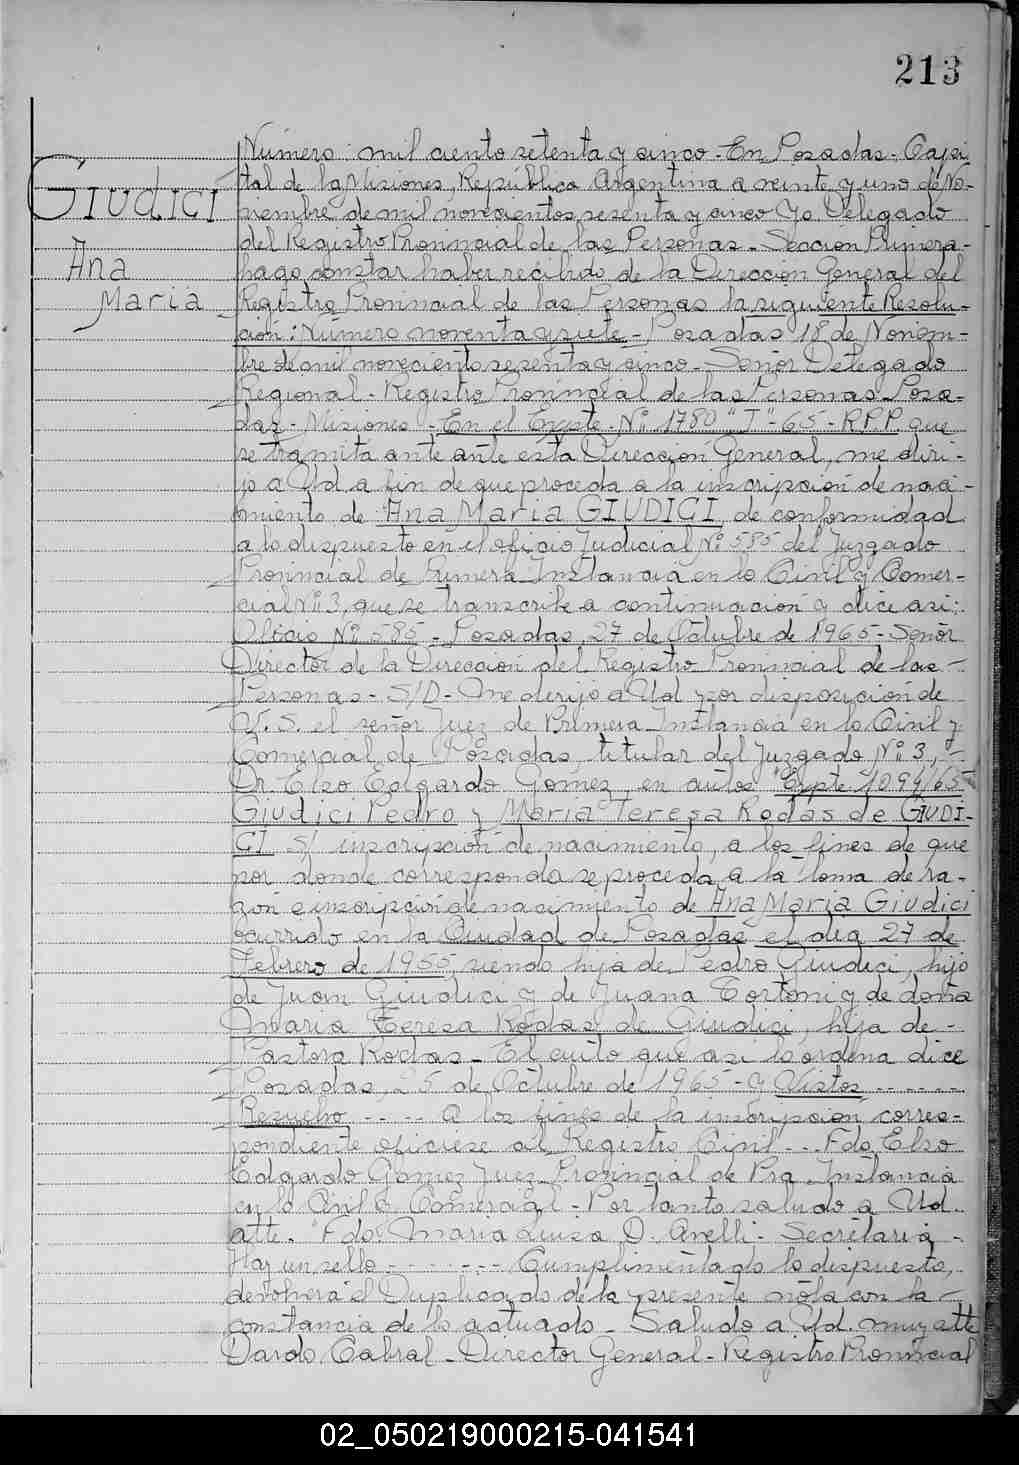 213
GIUDICI
Ana
Maria
Número: mil ciento setenta y cinco - En Posadas - Capi-
tal de la Misiones, República Argentina a veinte y uno de No-
viembre de mil novecientos sesenta y cinco Yo Delegado
del Registro Provincial de las Personas - Sección Primera -
hago constar haber recibido de la Dirección General del
Registro Provincial de las Personas la siguiente Resolu-
ción: Número noventa y siete - Posadas 18 de Noviem-
bre de mil novecientos sesenta y cinco - Señor Delegado
Regional - Registro Provincial de las Personas - Posa-
das - Misiones - En el Expte. Nº 1780 "J" - 65 - R.P.P. que
se tramita ante ante esta Dirección General, me diri-
jo a Ud. a fin de que proceda a la inscripción de naci-
miento de Ana Maria GIUDICI, de conformidad
a lo dispuesto en el oficio Judicial Nº 585 del Juzgado
Provincial de Primera Instancia en lo Civil y Comer-
cial Nº 3, que se transcribe a continuación y dice asi:
Oficio Nº 585 - Posadas, 27 de Octubre de 1965 - Señor
Director de la Dirección del Registro Provincial de las -
Personas - S/D - Me dirijo a Ud por disposición de
V. S. el señor Juez de Primera Instancia en lo Civil y
Comercial de Posadas, titular del Juzgado Nº 3, -
Dr. Elso Edgardo Gomez, en autos "Expte 1099/65
Giudici Pedro y Maria Teresa Rodas de GIUDI-
CI S/ inscripción de nacimiento, a los fines de que
por donde corresponda se proceda a la toma de ra-
zón e inscripción de nacimiento de Ana Maria Giudici
ocurrido en la Ciudad de Posadas el día 27 de
Febrero de 1955, siendo hija de Pedro Giudici, hijo
de Juan Giudici y de Juana Tortoni y de doña
Maria Teresa Rodas de Giudici, hija de -
Pastora Rodas - El auto que asi lo ordena dice
Posadas, 25 de Octubre de 1965 - y Vistos - - - - - -
Resuelvo - - - - - A los fines de la inscripción corres-
pondiente oficiese al Registro Civil - - - Fdo. Elso
Edgardo Gomez Juez Provincial de Pra. Instancia
en lo Civil y Comercial - Por tanto saludo a Ud.
atte. "Fdo: Maria Luisa D. Avelli - Secretaria -
Hay un sello - - - - - - - Cumplimentado lo dispuesto,
devolverá el Duplicado de la presente nota con la -
constancia de lo actuado - Saludo a Ud. muy atte
Dardo Cabral - Director General - Registro Provincial
02_050219000215-041541